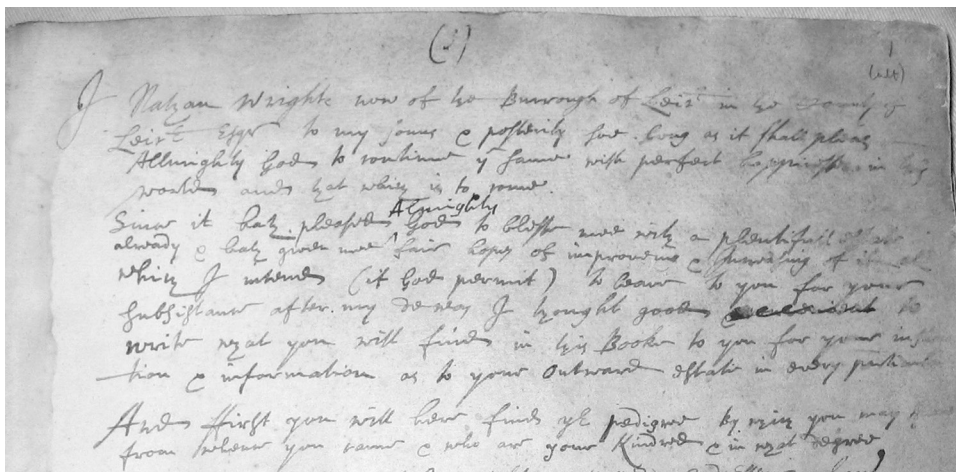 (1)
I Nathan Wrighte now of the Burrough of Leicr in the County of
Leicr Esqr to my sonns & posterity soe long as it shall pleas
Allmighty God to continue ye same with perfect happiness in this
world and that which is to come.
Since it hath pleased Almighty God to blesse mee with a plentifull estate
already & hath given mee fair hopes of improveing & increasing of it
which I intend (if God permit) to leave to you for your
subsistance after my deceas I thought good to
write what you will find in this Booke to you for your instruc
tion & information as to your outward estate in every particular
And ffirst you will here find ye pedigree by which you may
from whence you came & who are your Kindred & in what degree